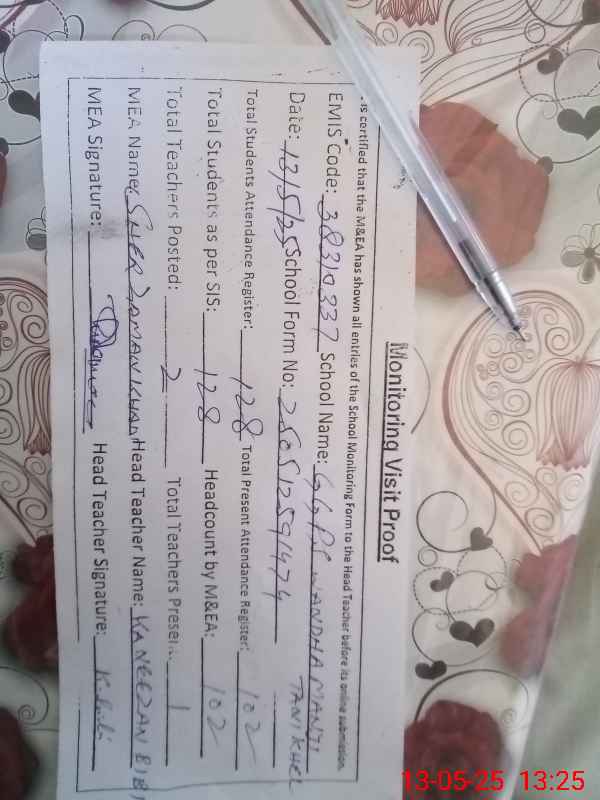 Monitoring Visit Proof
is certified that the M&EA has shown all entries of the School Monitoring Form to the Head Teacher before its online submission.
EMIS Code: 38310337 School Name: GGPS WANDHA MANJI TANI KHEL
Date: 13/5/25 School Form No: 250512591474
Total Students Attendance Register: 128 Total Present Attendance Register: 102
Total Students as per SIS: 128 Headcount by M&EA: 102
Total Teachers Posted: 2 Total Teachers Present: 1
MEA Name: SHER ZAMAN KHAN Head Teacher Name: KANEEZAN BIBI
MEA Signature: Head Teacher Signature:
13-05-25 13:25